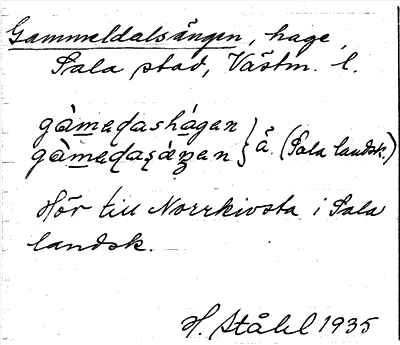 Gammeldalsängen, hage,
Sala stad, Västm. l.
gàmedashágen } å. (Sala landsk.)
gàmedasǽŋen
Hör till Norrkivsta i Sala
landsk.
H. Ståhl 1935